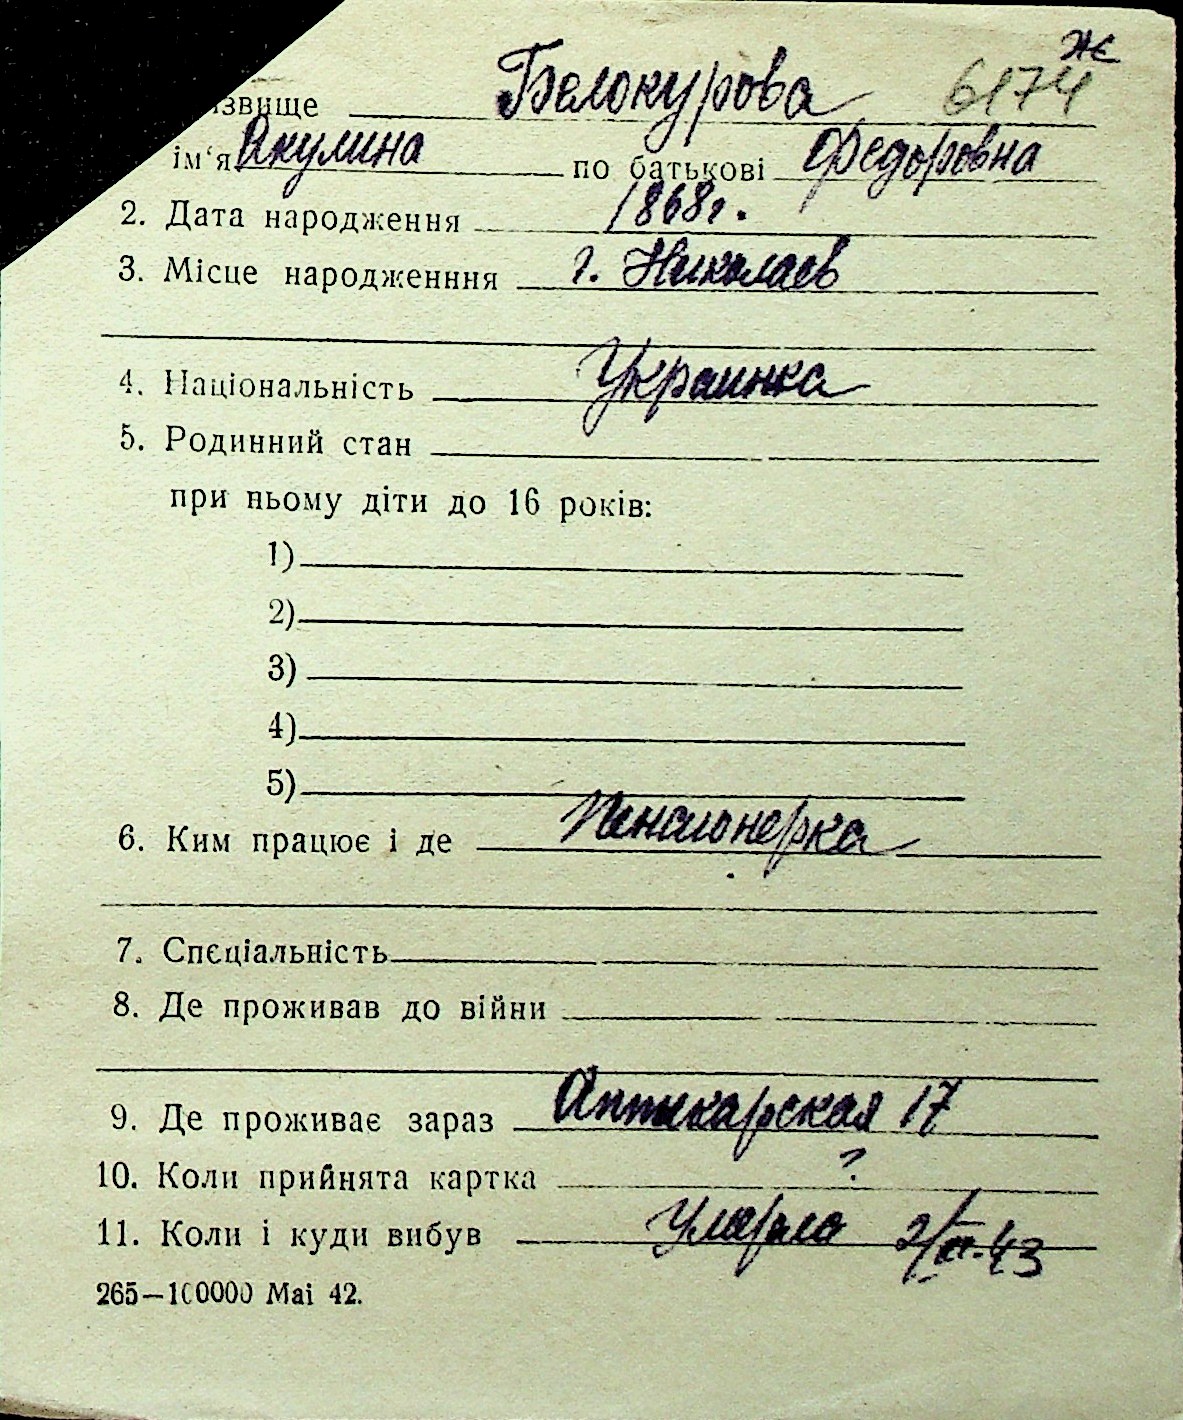 ж
ізвище Белокурова 6174
ім‘я Акулина по батькові Федоровна
2. Дата народження 1868г.
3. Місце народженння г. Николаев
4. Національність Украинка
5. Родинний стан
при ньому діти до 16 років:
1)
2)
3)
4)
5)
6. Ким працює і де Пенсионерка
7. Спєціальність
8. Де проживав до війни
9. Де проживає зараз Аптекарская 17
10. Коли прийнята картка ?
11. Коли і куди вибув Умерла 43
265—100000 Mai 42.